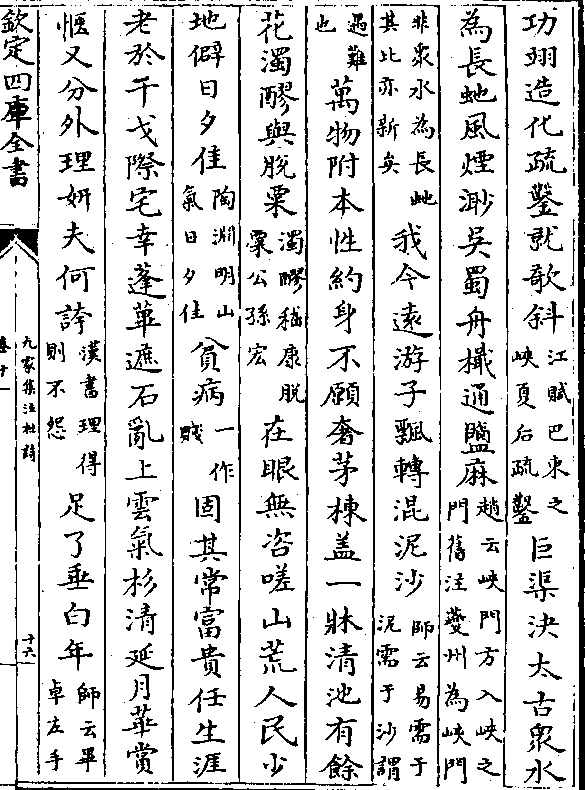 功翊造化疏鑿就欹斜江賦巴東之峽夏后疏鑿巨渠決太古眾水
為長虵風煙渺吳蜀舟檝通鹽麻趙云峽門方入峽之門舊注夔州為峽門
非眾水為長虵其比亦新矣我今遠游子飄轉混泥沙師云易需于泥需于沙謂
遇難也萬物附本性約身不願奢茅棟蓋一牀清池有餘
花濁醪與脫粟濁醪嵇康脫粟公孫宏在眼無咨嗟山荒人民少
地僻日夕佳陶淵明山氣日夕佳貧病一作賤固其常富貴任生涯
老於干戈際宅幸蓬蓽遮石亂上雲氣杉清延月華賞
愜又分外理妍夫何誇漢書理得則不怨足了垂白年師云畢卓左手
欽定四庫全書
九家集注杜詩
卷十一
十六